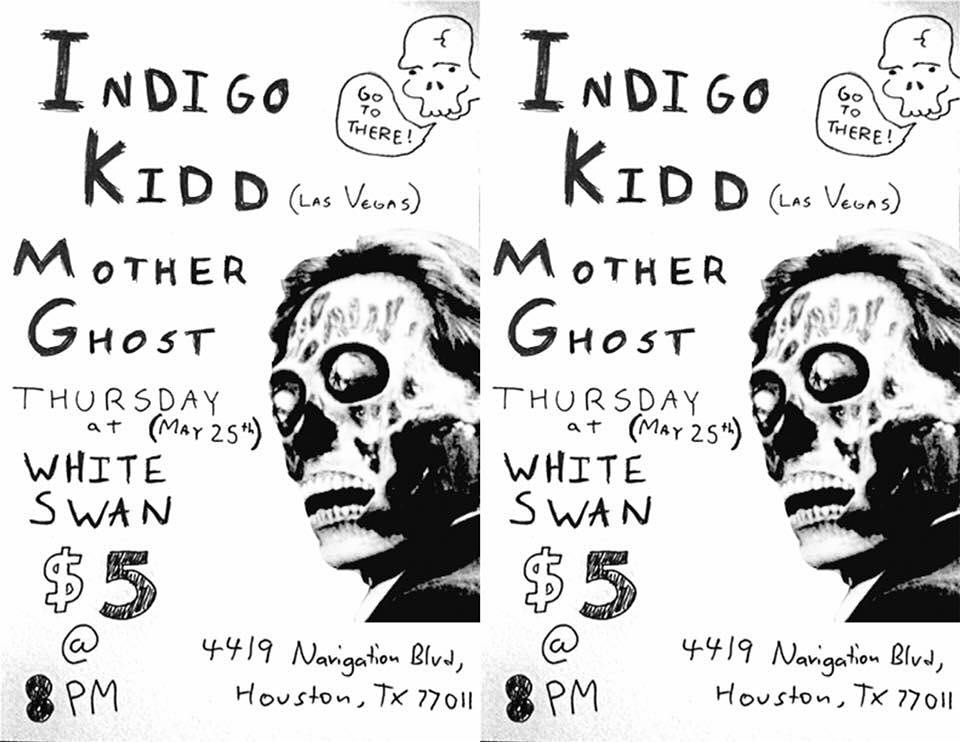 INDIGO
KIDD (LAS VEGAS)
GO
TO
THERE!
MOTHER
GHOST
THURSDAY
at (MAY 25th)
WHITE
SWAN
$5
@
8 PM
4419 Navigation Blvd,
Houston, TX 77011
INDIGO
KIDD (LAS VEGAS)
GO
TO
THERE!
MOTHER
GHOST
THURSDAY
at (MAY 25th)
WHITE
SWAN
$5
@
8 PM
4419 Navigation Blvd,
Houston, TX 77011